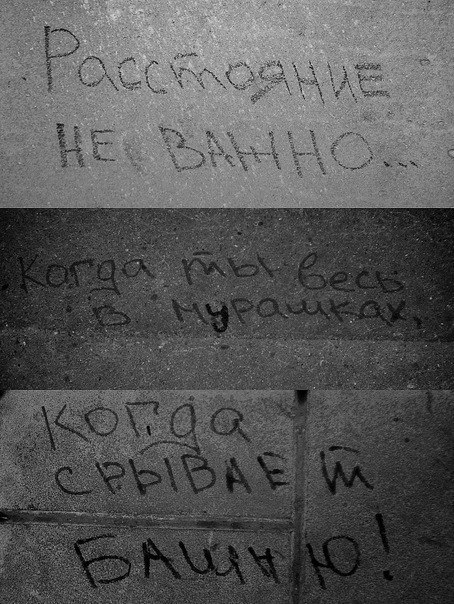 Расстояние
не важно...
когда ты весь
в мурашках,
когда
срывает
башню!